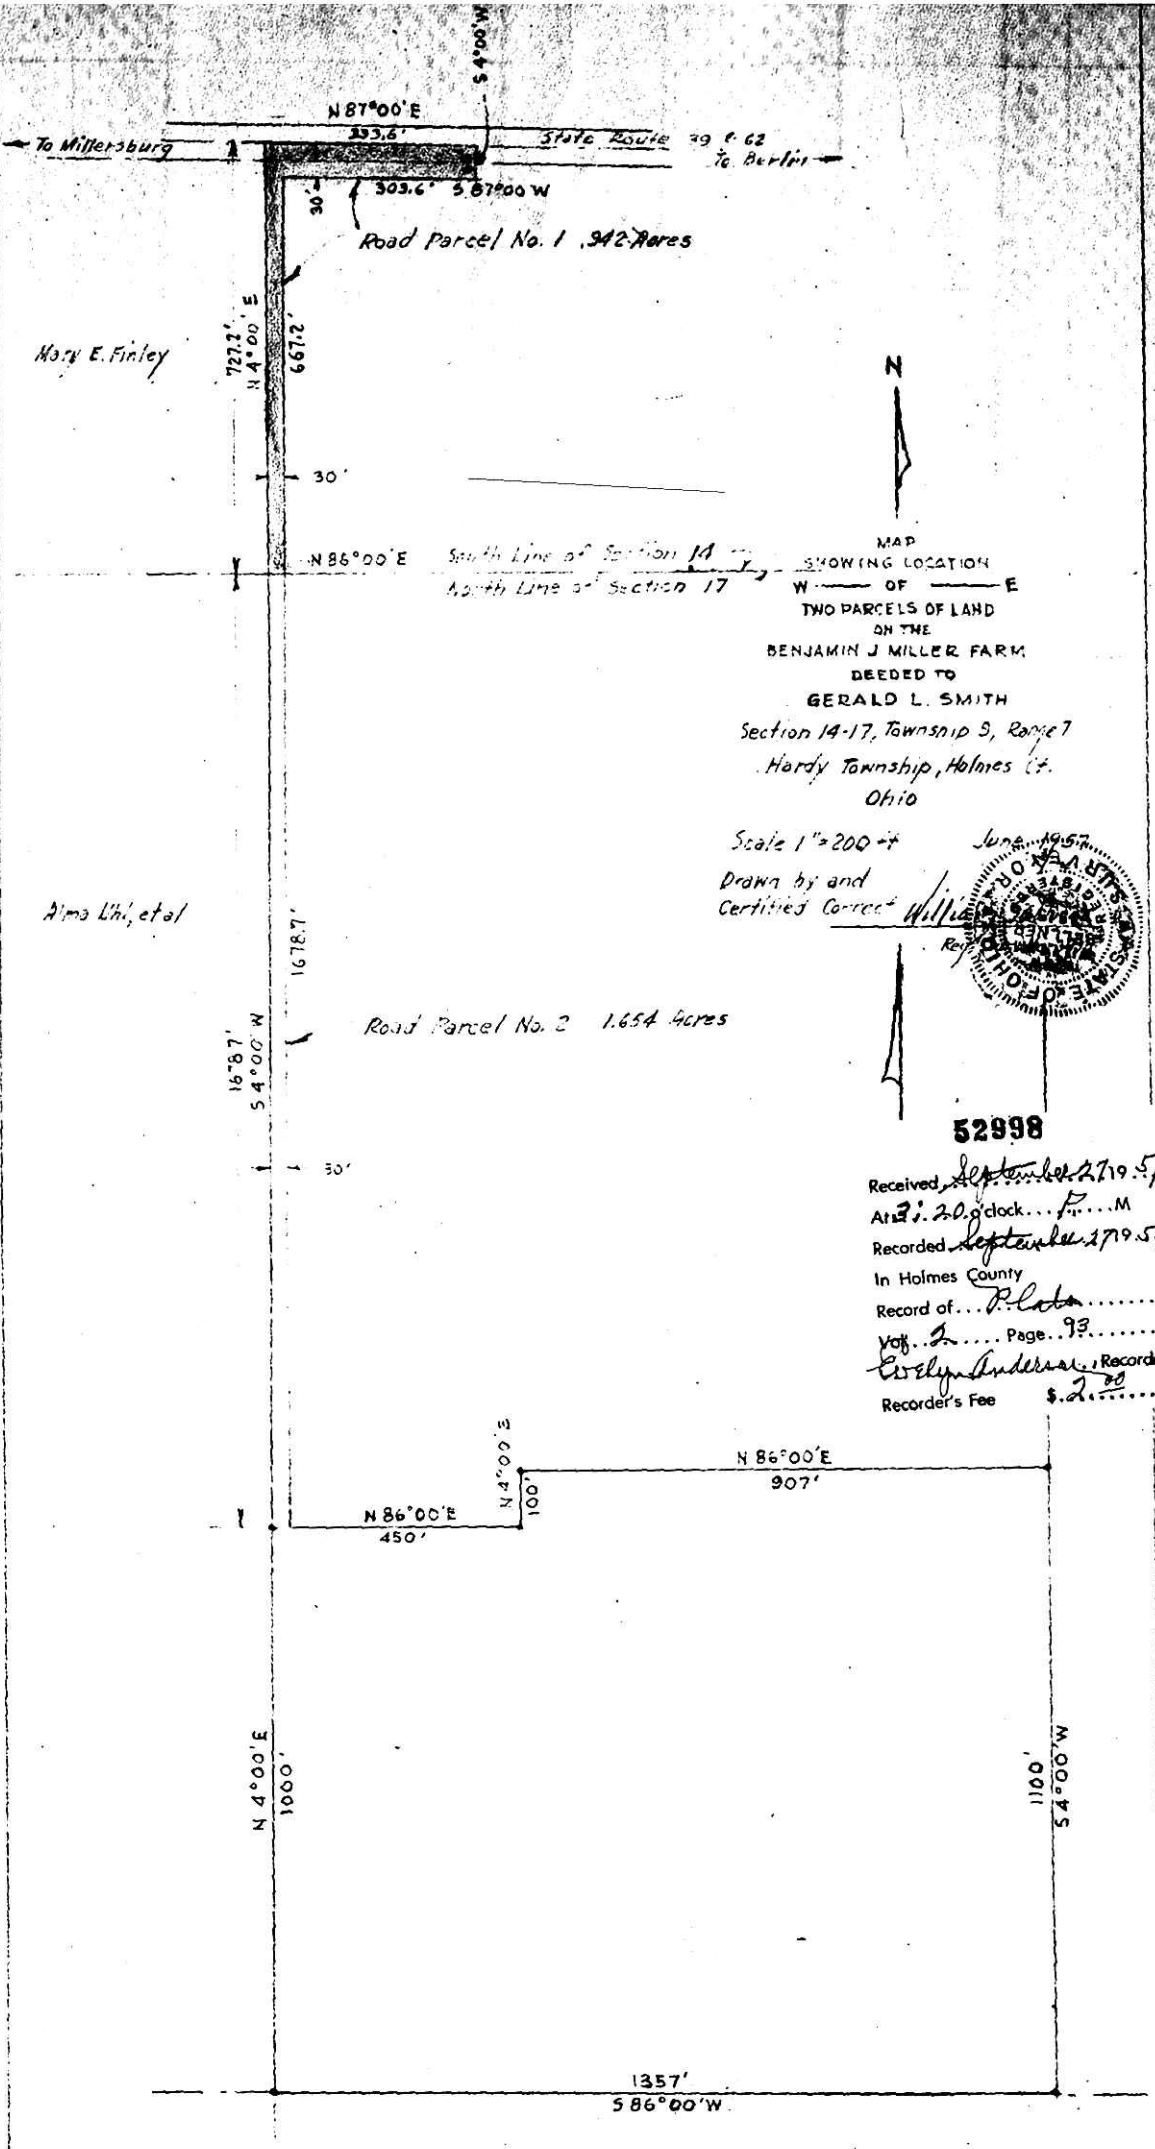 S 4°00'W
N 87°00'E
To Millersburg
State Route 39 & 62
To Berlin
30'
303.6' S 87°00 W
Road Parcel No. 1 .942 Acres
727.2'
N 4°00' E
667.2'
Mary E. Finley
N
30'
N 86°00'E
South Line of Section 14
North Line of Section 17
MAP
SHOWING LOCATION
W OF E
TWO PARCELS OF LAND
ON THE
BENJAMIN J MILLER FARM
DEEDED TO
GERALD L. SMITH
Section 14-17, Township 9, Range 7
Hardy Township, Holmes Ct.
Ohio
Scale 1"=200 ft
June 1957
Drawn by and
Certified Correct
STATE OF OHIO
SURVEYOR
REGISTERED
Alma et al
1678.7'
Road Parcel No. 2 1.654 Acres
1678.7'
S 4°00' W
30'
52998
Received September 27 19
At 3:20 o'clock P. M
Recorded September 27 19
In Holmes County
Record of Plats
Vol. 2 Page 93
Evelyn Anderson, Record
Recorder's Fee $ 2.00
N 86°00'E
907'
N 4°00'E
100'
N 86°00'E
450'
N 4°00'E
1000'
1100'
S 4°00'W
1357'
S 86°00'W